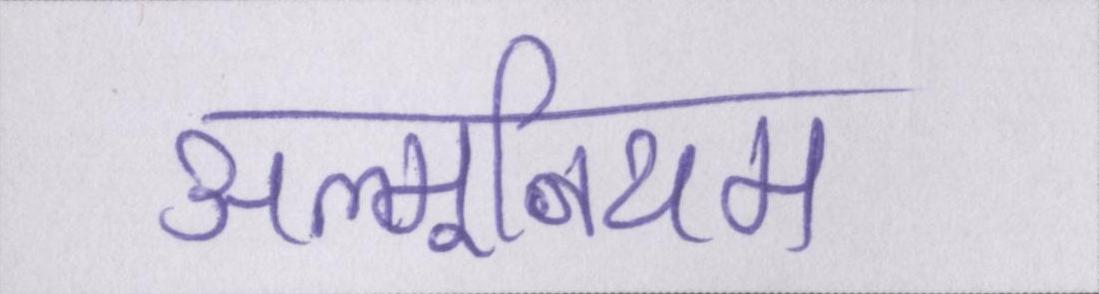 अल्मूनियम